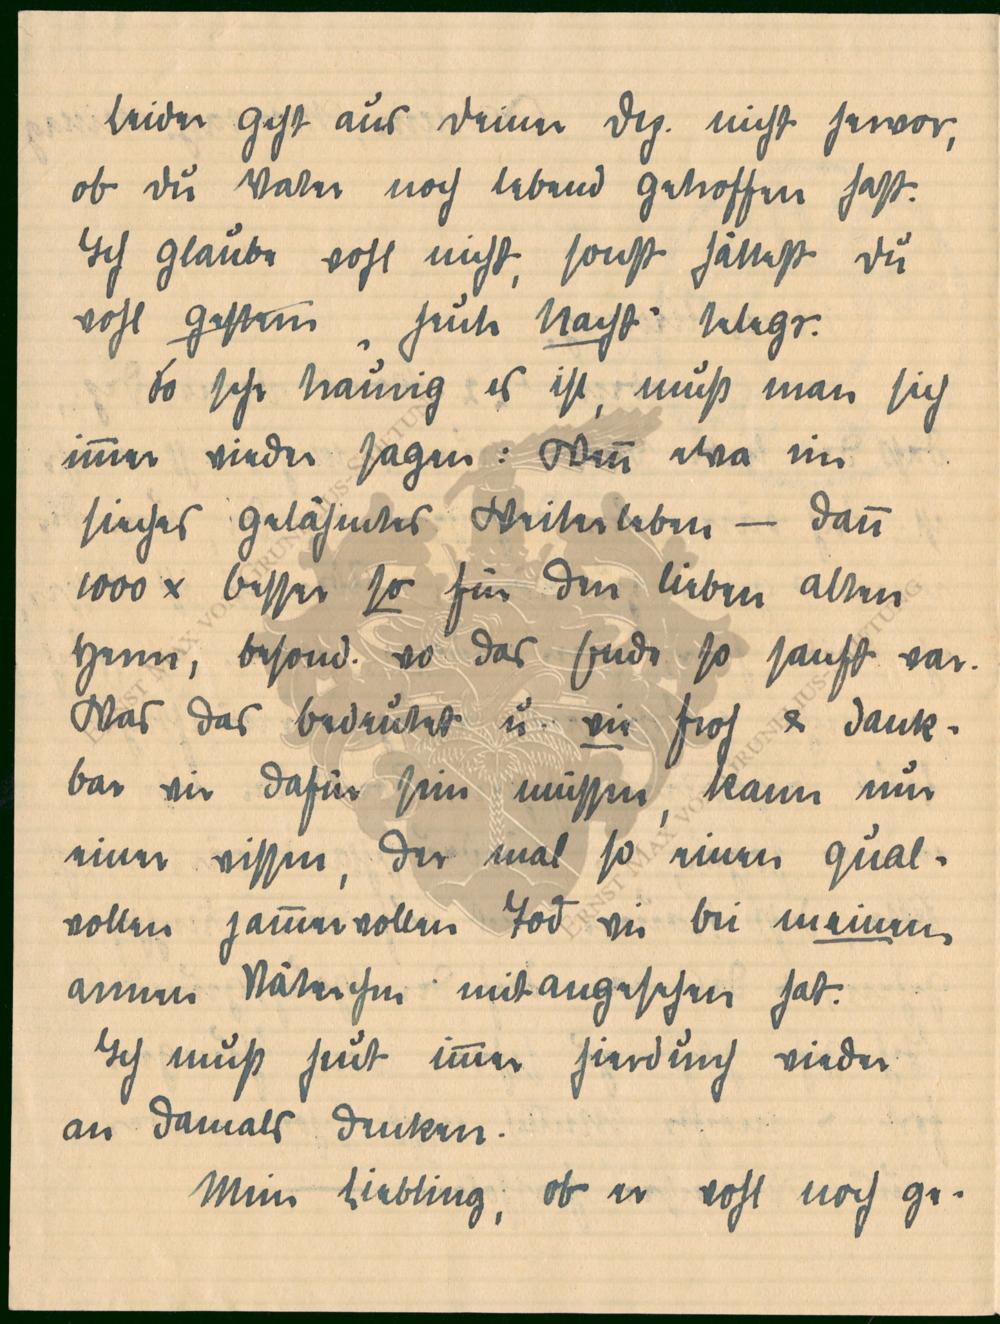 leider geht aus deiner Dep. nicht hervor,
ob du Vater noch lebend getroffen hast.
Ich glaube wohl nicht, sonst hättest du
wohl gestern, heute Nacht telegr.
So sehr traurig es ist, muß man sich
im̅er wieder sagen: Wen̅ etwa ein
sieches gelähmtes Weiterleben — dan̅
1000 x besser so für den lieben alten
Herrn, besond. wo das Ende so sanft war.
Was das bedeutet u. wie froh & dank-
bar wir dafür sein müssen, kann nur
einer wissen, der mal so einen qual-
vollen jam̅ervollen Tod wie bei meinem
armen Väterchen mitangesehen hat.
Ich muß heut im̅er hierdurch wieder
an damals denken.
Mein Liebling, ob er wohl noch ge-
ERNST MAX VON GRUNELIUS-STIFTUNG
ERNST MAX VON GRUNELIUS-STIFTUNG